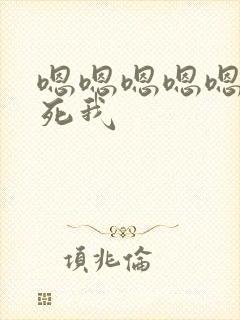 嗯嗯嗯嗯嗯
死我
項兆倫